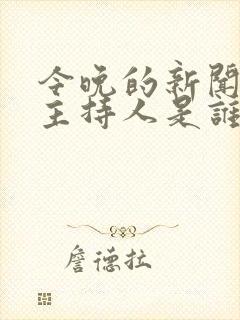 今晚的新聞
主持人是誰
詹德拉